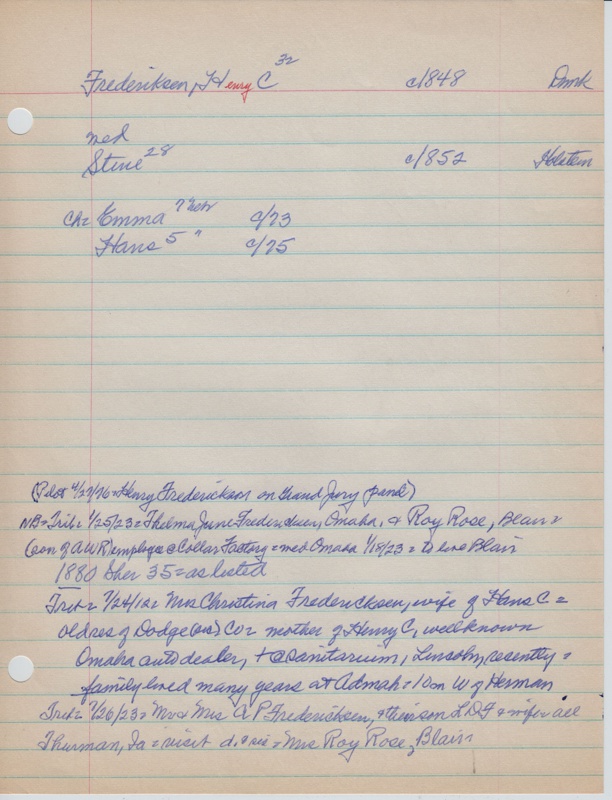 Frederiksen, Henry C 32 c/1848 Dmrk
med
Stine 28 c/1852 Holstein
Ch= Emma 7 Nebr c/73
Hans 5 " c/75
(Pilot 4/27/76=Henry Frederickson on Grand Jury panel)
NB=Trib= 1/25/23=Thelma June Fredericksen, Omaha, & Roy Rose, Blair=
(son of AWR) employee @ Collar Factory=med Omaha 1/18/23=to live Blair
1880 Sher 35=as listed
Trib= 7/24/12= Mrs Christina Fredericksen, wife of Hans C=
old res of Dodge Co= mother of Henry C, well known
Omaha auto dealer, + @ sanitarium, Lincoln, recently=
family lived many years at Admah=10m W of Herman
Trib= 7/26/23= Mr & Mrs A P Fredericksen, & their son L.D.F & wife all
Thurman, Ia = visit d. & sis= Mrs Roy Rose, Blair=